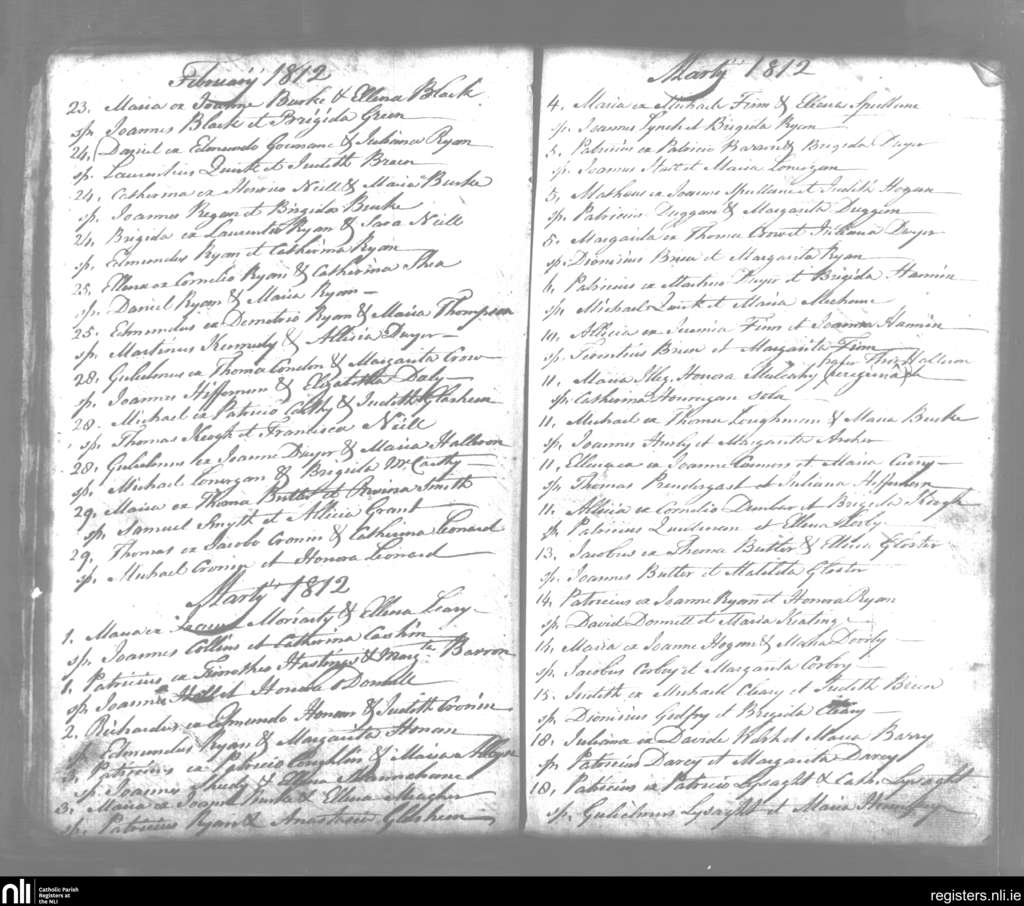 February 1812
23. Maria ex Joanne Burke & Ellena Black
sp. Joannes Black et Brigida Green
24. Daniel ex Edmundo Gormane & Juliana Ryan
sp. Laurentius Quirk et Judith Breen
24. Catherina ex Henrico Neill & Maria Burke
sp. Joannes Regan et Brigida Burke
24. Brigida ex Laurentio Ryan & Sara Neill
sp. Edmundus Ryan et Catherina Ryan
25. Ellena ex Cornelio Ryan & Catherina Shea
sp. Daniel Ryan & Maria Ryan
25. Edmundus ex Demetrio Ryan & Maria Thompson
sp. Martinus Kennedy & Allicia Dwyer
28. Gulielmus ex Thoma Condon & Margarita Crow
sp. Joannes Heffernan & Elizabetha Daly
28. Michael ex Patricio Cathy & Judith Glasheen
sp. Thomas Keogh et Francisca Neill
28. Gulielmus ex Joanne Dwyer & Maria Halloran
sp. Michael Lonergan & Brigida McCarthy
29. Maria ex Thoma Butler et Smith
sp. Samuel Smyth et Allicia Grant
29. Thomas ex Jacobo Cronin & Catherina Leonard
sp. Michael Cronin et Honora Leonard
Martij 1812
1. Maria ex Moriarty & Ellena Leary
sp. Joannes Collins et Catherina Cashin
1. Patricius ex Timotheo Hastings & Margta Barron
sp. Joannes Hall et Honora ODonnell
2. Richardus ex Edmundo Honan & Judith Cronin
sp. Edmundus Ryan & Margarita Honan
3. Patricius ex Patricio Coughlin & Maria
sp. Joannes & Ellena
3. Maria ex Joanne Burke & Ellena Meagher
sp. Patricius Ryan & Anastasia Glasheen
Martij 1812
4. Maria ex Michael Finn & Eliena Spullane
sp. Joannes Lynch et Brigida Ryan
5. Patricius ex Patricio Baron & Brigida Dwyer
sp. Joannes et Maria Lonergan
5. Matheus ex Joanne Spullane et Judith Hogan
sp. Patricius Duggan & Margarita Duggan
5. Margarita ex Thoma Crow et Juliana Dwyer
sp. Dionisius Breen et Margarita Ryan
6. Patricius ex Martino Dwyer et Brigida
sp. Michael Quirk et Maria
10. Allicia ex Jeremia Finn et Joanna
sp. Terentius Breen et Margarita Finn
11. Maria Illeg. Honora Mulcahy
sp. Catherina Hourigan sola
11. Michael ex Thoma Loughman & Maria Burke
sp. Joannes et Margarita Archer
11. Ellena ex Joanne Connors et Maria
sp. Thomas Prendergast et Juliana Heffernan
11. Allicia ex Cornelio Dunbar et Brigida Keogh
sp. Patricius et Ellena
13. Jacobus ex Thoma Butler & Ellena Gloster
sp. Joannes Butler et Matilda Gloster
14. Patricius ex Joanne Ryan et Honora Ryan
sp. David Donnell et Maria Keating
14. Maria ex Joanne Hogan & Maria
sp. Jacobus Corby et Margarita Corby
15. Judith ex Michael Cleary et Judith Breen
sp. Dionisius Godfry et Brigida Cleary
18. Juliana ex Davide Walsh et Maria Barry
sp. Patricius Darcy et Margarita Darcy
18. Patricius ex Patricio Lysaght & Cath. Lysaght
sp. Gulielmus Lysaght et Maria
nli
Catholic Parish
Registers at
the NLI
registers.nli.ie